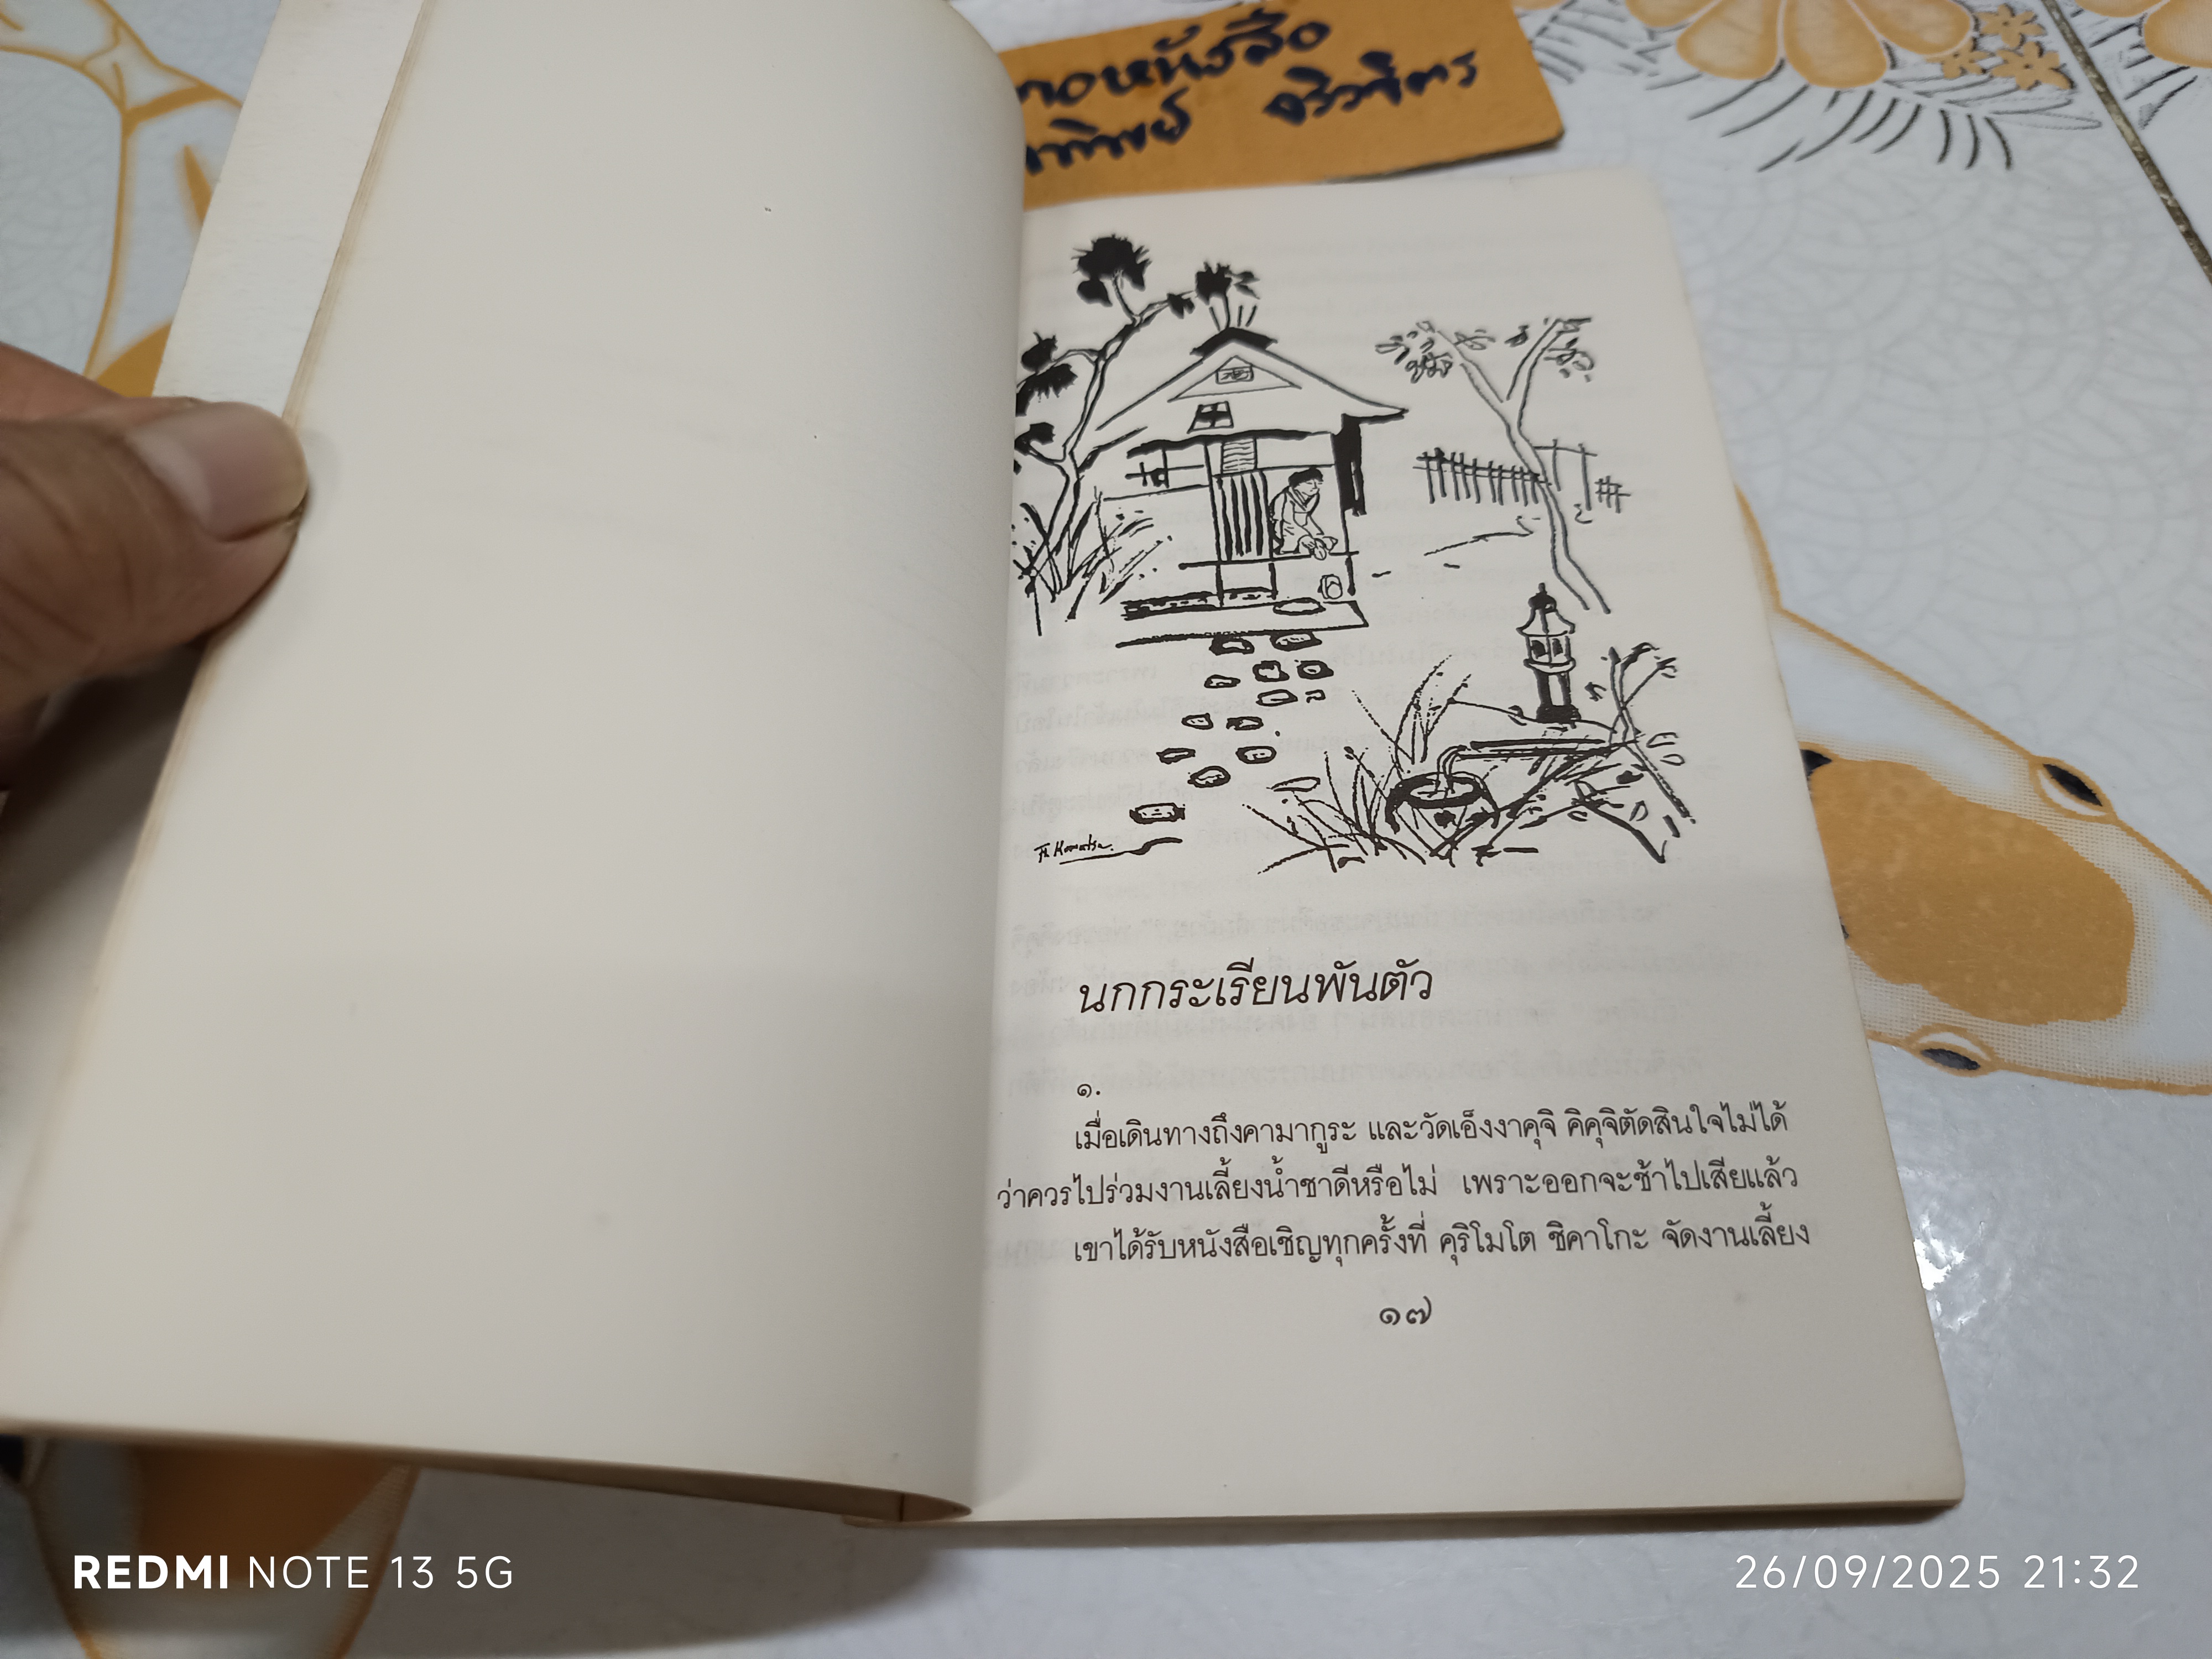 หนังสือ
นกกระเรียนพันตัว
๑.
เมื่อเดินทางถึงคามากูระ และวัดเอ็งงาคุจิ คิคุจิตัดสินใจไม่ได้
ว่าควรไปร่วมงานเลี้ยงน้ำชาดีหรือไม่ เพราะออกจะช้าไปเสียแล้ว
เขาได้รับหนังสือเชิญทุกครั้งที่ คุริโมโต ชิคาโกะ จัดงานเลี้ยง
๑๗
REDMI NOTE 13 5G
26/09/2025 21:32